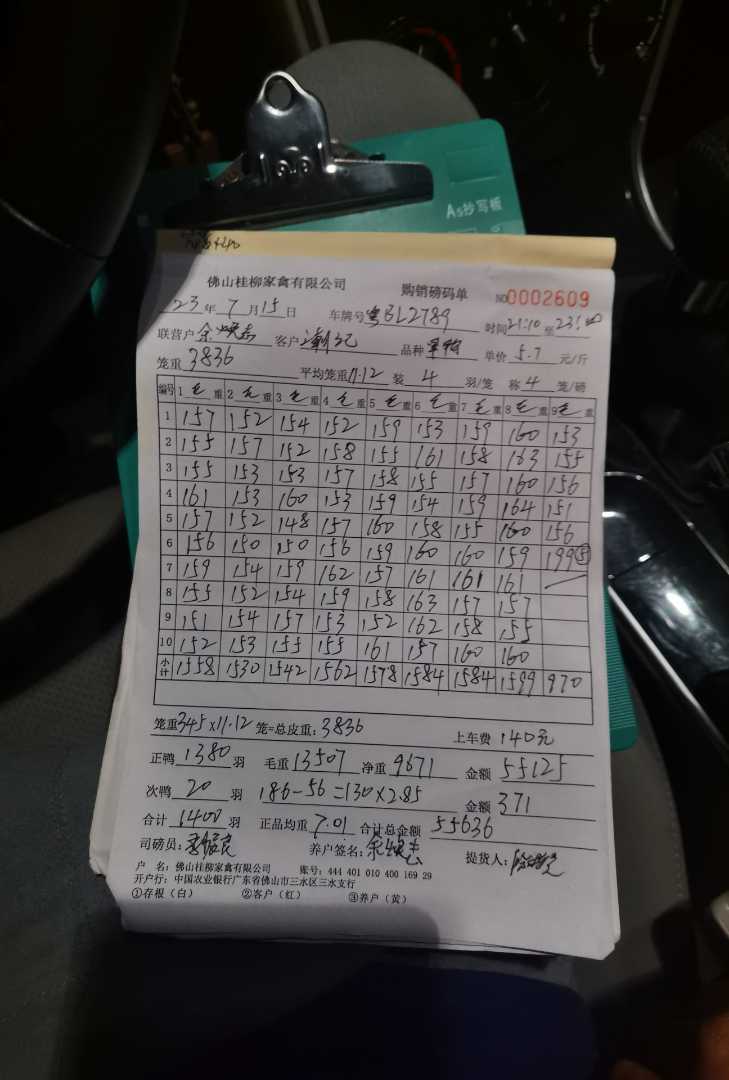 As抄写板
佛山桂柳家禽有限公司 购销磅码单 NO0002609
23年7月15日 车牌号粤BL2789 时间21:10至23:00
联营户 余 客户 潮记 品种 单价5.7元/斤
笼重3836 平均笼重11.12 装4羽/笼 称4笼/磅
编号 1毛重 2毛重 3毛重 4毛重 5毛重 6毛重 7毛重 8毛重 9毛重
1 157 152 154 152 159 153 159 160 153
2 155 157 152 158 155 161 158 163 155
3 155 153 153 157 158 155 157 160 156
4 161 153 160 153 159 154 159 164 151
5 157 152 148 157 160 158 155 160 156
6 156 150 150 156 159 160 160 159 199⑤
7 159 154 159 162 157 161 161 161
8 155 152 154 159 158 163 157 157
9 151 154 157 153 152 162 158 155
10 152 153 155 155 161 157 160 160
小计 1558 1530 1542 1562 1578 1584 1584 1599 970
笼重345×11.12笼=总皮重:3836 上车费140元
正鸭1380羽 毛重13507 净重9671 金额55125
次鸭20羽 186-56=130×2.85 金额371
合计1400羽 正品均重7.01 合计总金额55636
司磅员: 养户签名:余 提货人:
户 名:佛山桂柳家禽有限公司 账号:444 401 010 400 169 29
开户行:中国农业银行广东省佛山市三水区三水支行
①存根(白) ②客户(红) ③养户(黄)